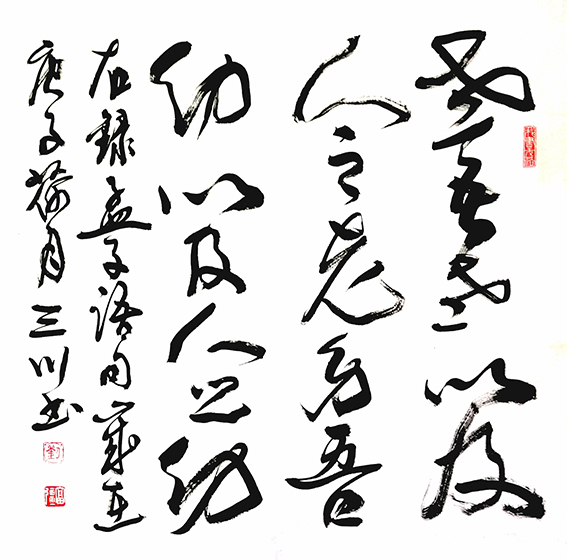 老吾老以及
人之老幼吾
幼以及人之幼
右録孟子语句歲在
庚子荷月三川书